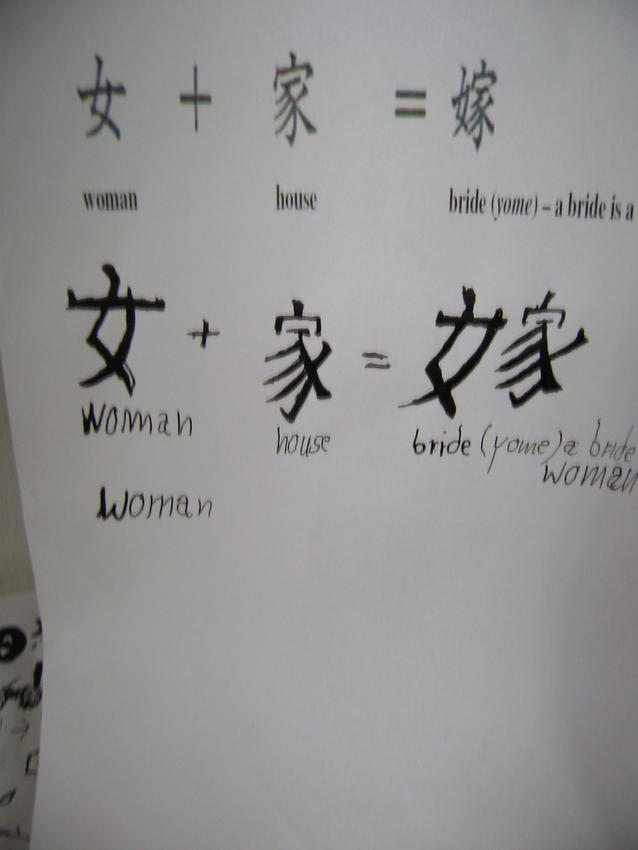 女 + 家 = 嫁
woman house bride (yome) – a bride is a
女 + 家 = 嫁
woman house bride (yome) a bride
woman
Woman